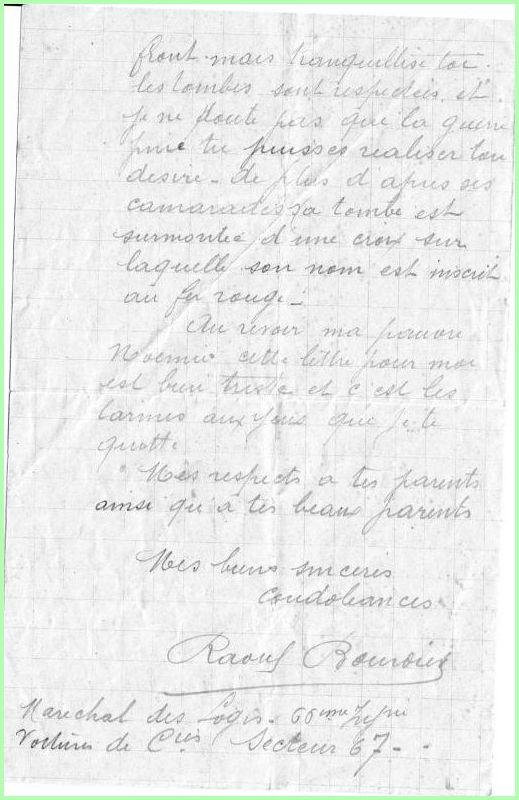 front mais tranquillise toi.
les tombes sont respectées et
je ne doute pas que la guerre
finie tu puisses realiser ton
desire - de plus d'apres ses
camarades sa tombe est
surmontée d'une croix sur
laquelle son nom est inscrit
au fer rouge -
Au revoir ma pauvre
Noemie cette lettre pour moi
est bien triste et c'est les
larmes aux yeux que je te
quitte
Mes respects a tes parents
ainsi qu'a tes beaux parents
Mes biens sinceres
condoleances
Raoul
Marechal des Logis - 66eme
Voitures de Cies Secteur 67 -